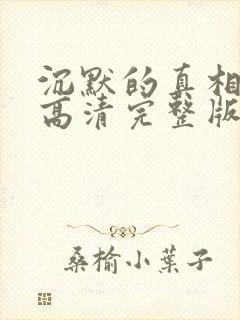 沉默的真相
高清完整版
桑榆小葉子